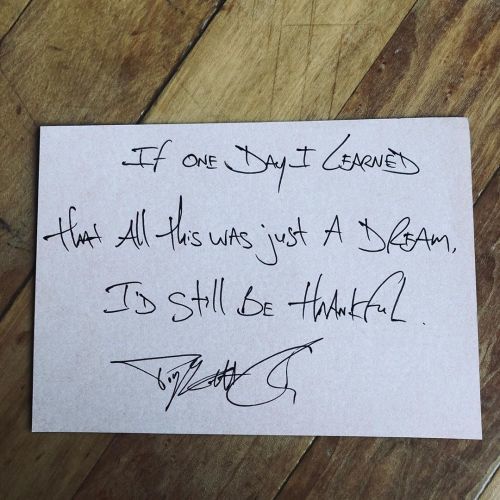 If ONE DAY I LEARNED
that All this WAS just A DREAM,
I'D still BE thANkfuL.